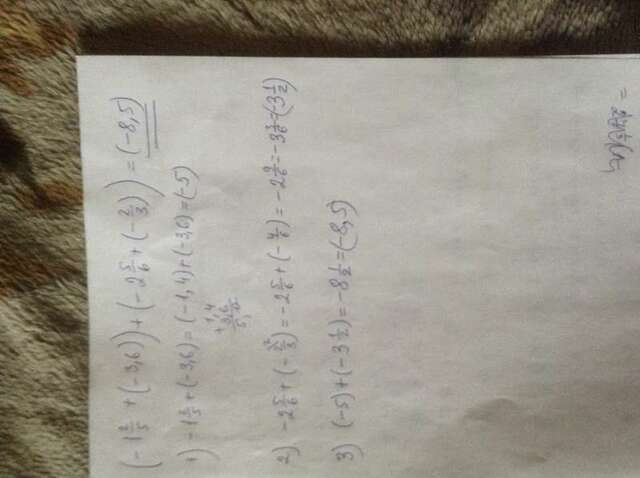 (-1 2/5 + (-3,6)) + (-2 5/6 + (-2/3)) = (-8,5)
1) -1 2/5 + (-3,6) = (-1,4) + (-3,6) = (-5)
1,4
+ 3,6
5,
2) -2 5/6 + (-2/3) = -2 5/6 + (-4/6) = -2 9/6 = -3 3/6 = (-3 1/2)
3) (-5) + (-3 1/2) = -8 1/2 = (-8,5)